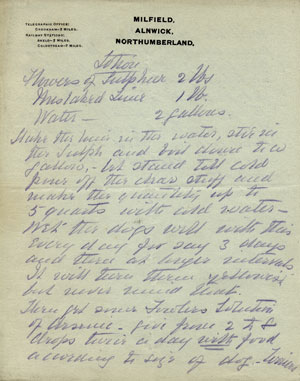 TELEGRAPHIC OFFICE:
CROOKHAM-2 MILES.
RAILWAY STATION:
AKELD-3 MILES.
COLDSTREAM-7 MILES.
MILFIELD,
ALNWICK,
NORTHUMBERLAND.
Lotion
Flowers of Sulphur 2 lbs
Unslaked Lime 1 lb.
Water - 2 gallons.
Make the lime in the water, stir in
the Sulph and boil down to
gallon, - let stand till cold
pour off the clear stuff and
make the quantity up to
5 quarts with cold water -
the dogs well with this
every day for say 3 days
and then at longer intervals.
It will turn them yellowish
but never mind that.
Then get some Fowlers Solution
of arsenic - give from 2 to 8
drops twice a day with food
according to size of dog -